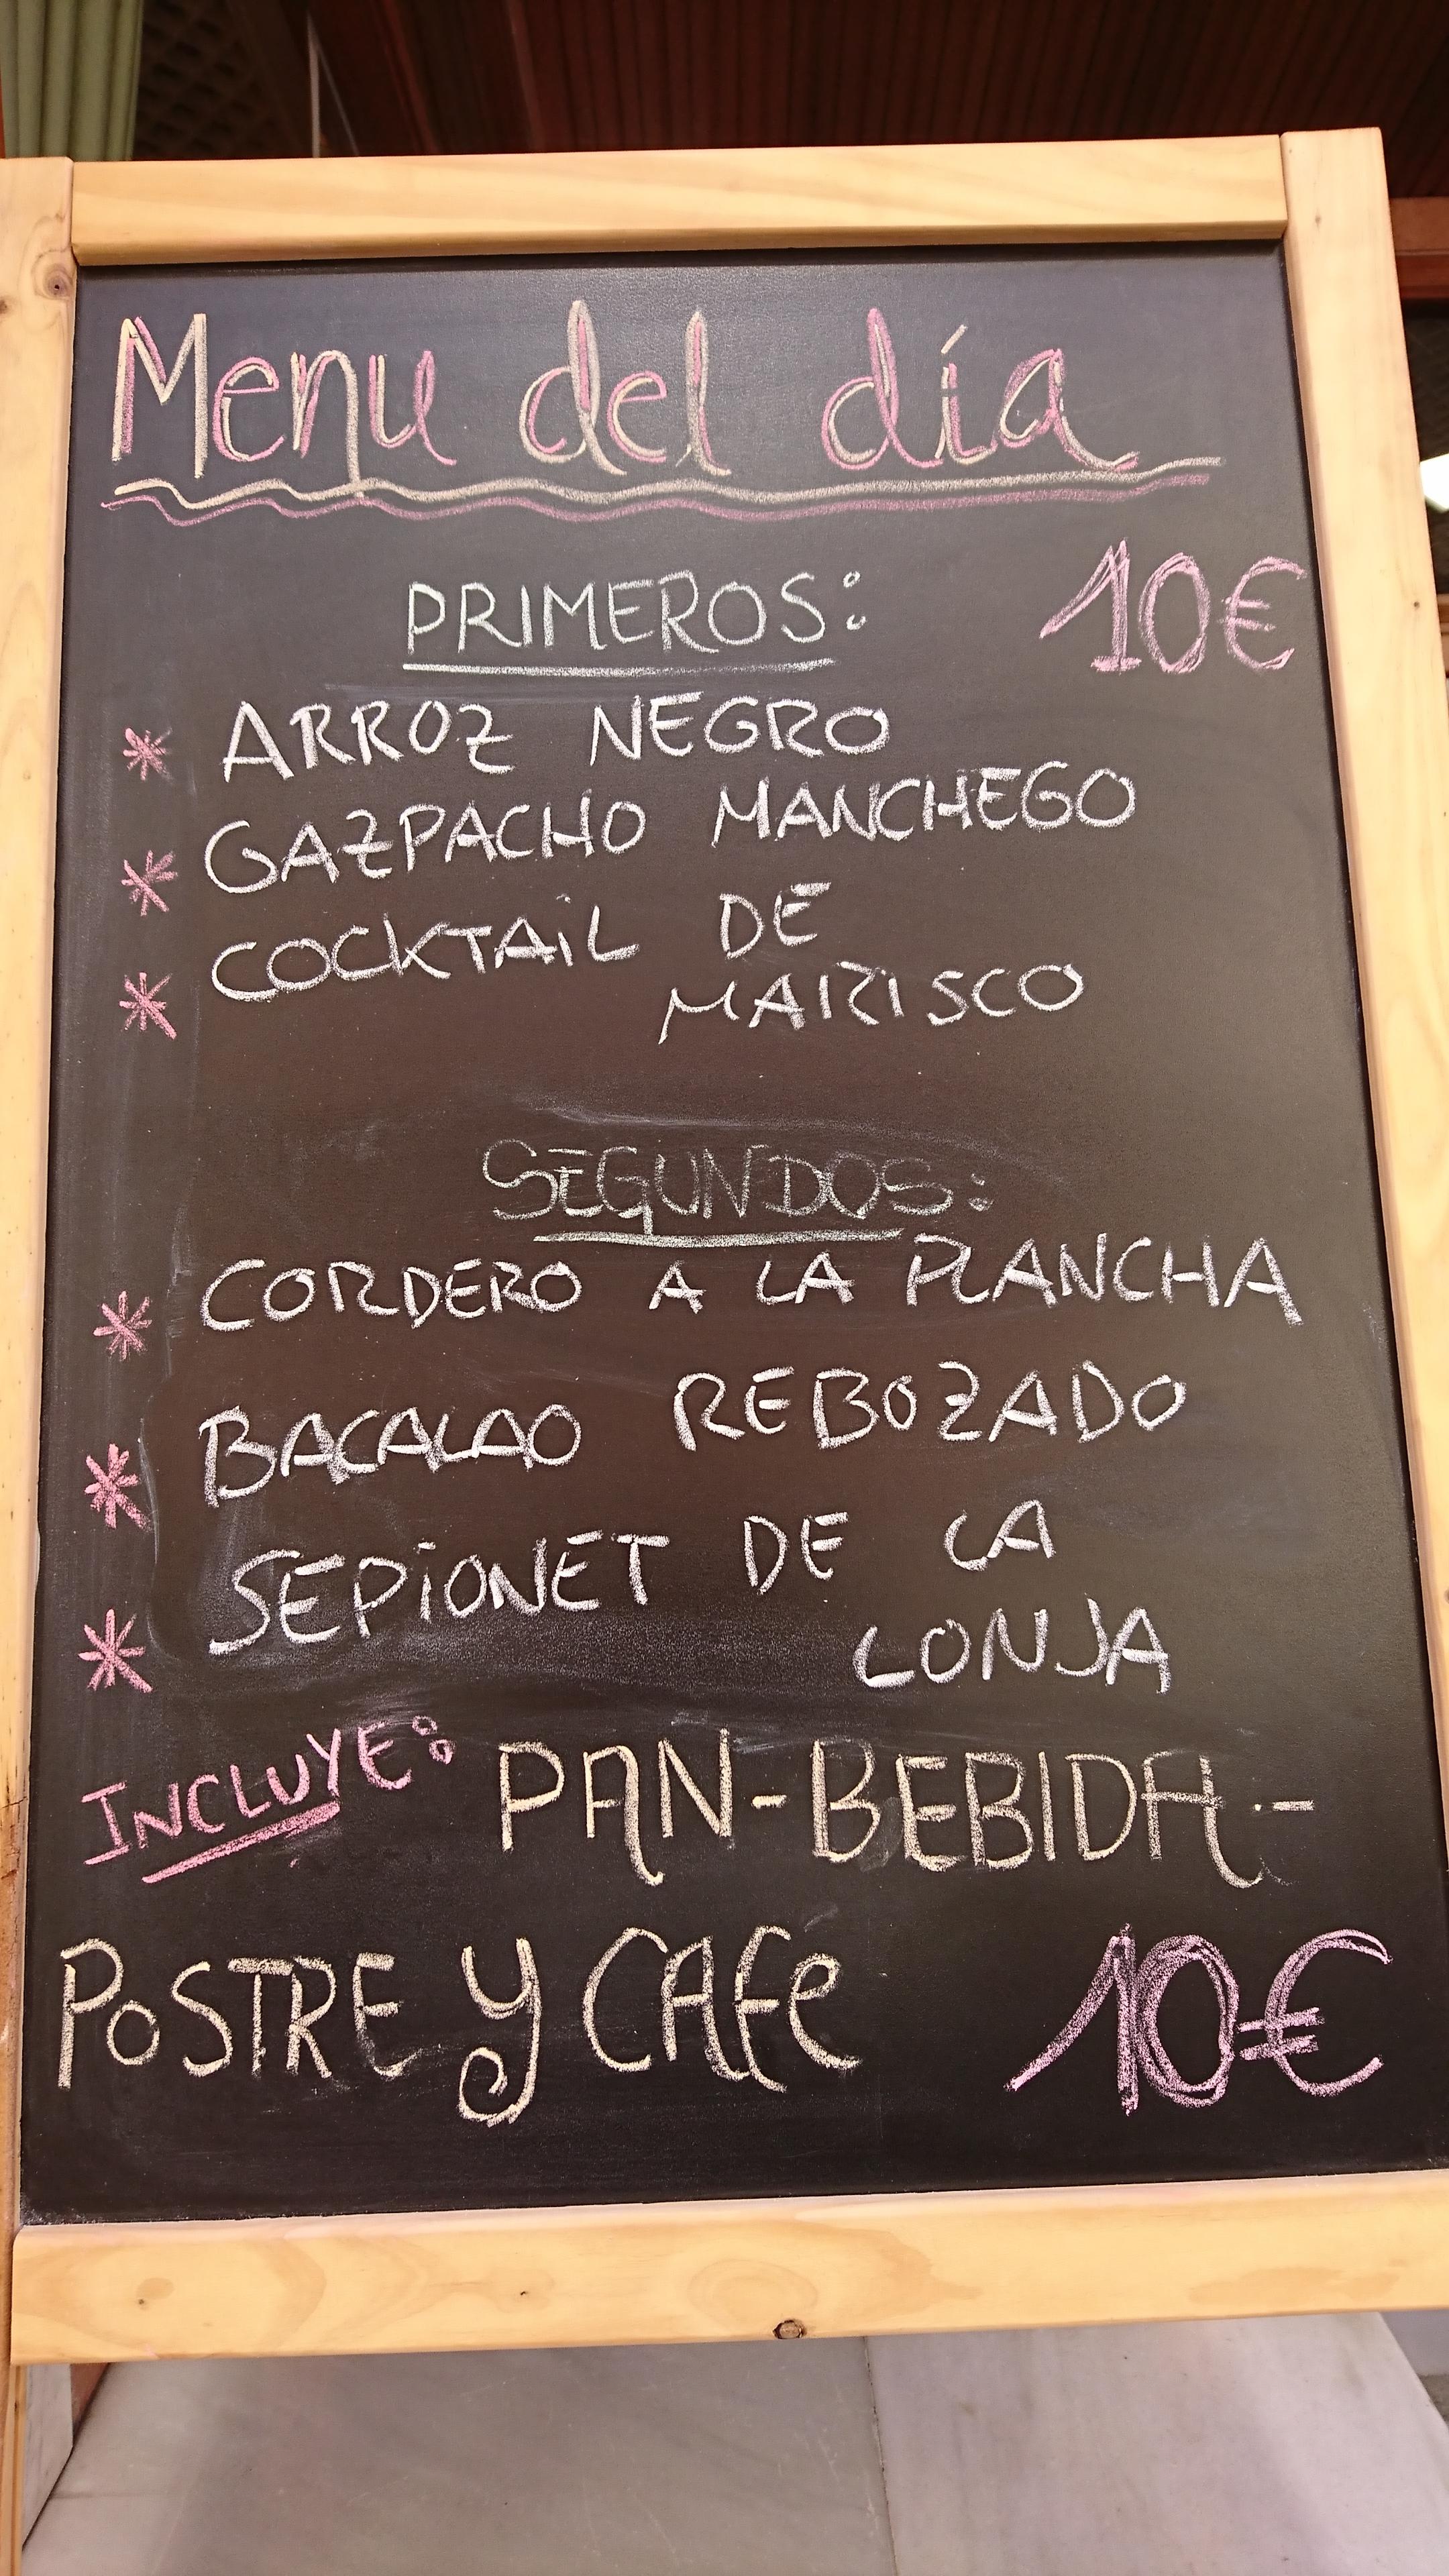 Menu del día
PRIMEROS: 10€
* ARROZ NEGRO
* GAZPACHO MANCHEGO
* COCKTAiL DE
MARISCO
SEGUNDOS:
* CORDERO A LA PLANCHA
* BACALAO REBOZADO
* SEPiONET DE LA
LONJA
INCLUYE: PAN-BEBIDA.-
POSTRE y CAFe 10€